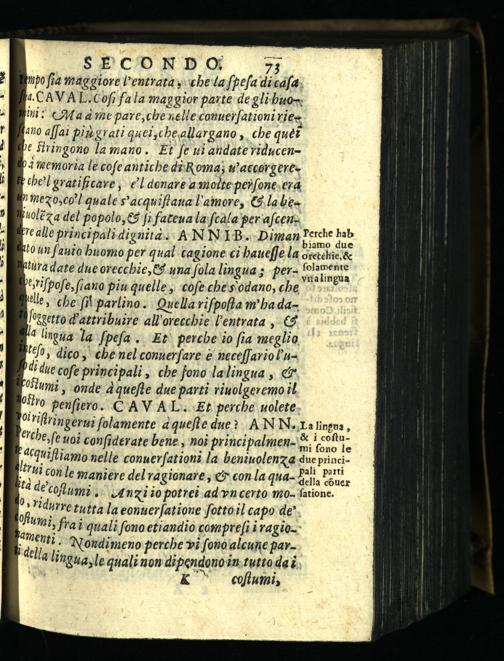 SECONDO. 73
tempo sia maggiore l'entrata, che la spesa di casa
sua. CAVAL. Cosi fa la maggior parte de gli huo-
mini: Ma à me pare, che nelle conuersationi rie-
scano assai più grati quei, che allargano, che quei
che stringono la mano. Et se ui andate riducen-
do à memoria le cose antiche di Roma, u'accorgere-
te che'l gratificare, e'l donare à molte persone era
un mezo, co'l quale s'acquistaua l'amore, & la be-
niuolẽza del popolo, & si faceua la scala per ascen-
dere alle principali dignità. ANNIB. Diman
dato un sauio huomo per qual cagione ci hauesse la
natura date due orecchie, & una sola lingua; per-
che, rispose, siano piu quelle, cose che s'odano, che
quelle, che si parlino. Quella risposta m'ha da-
to soggetto d'attribuire all'orecchie l'entrata, &
alla lingua la spesa. Et perche io sia meglio
inteso, dico, che nel conuersare è necessario l'u-
so di due cose principali, che sono la lingua, &
i costumi, onde à queste due parti riuolgeremo il
nostro pensiero. CAVAL. Et perche uolete
voi ristringerui solamente à queste due? ANN.
Perche, se uoi considerate bene, noi principalmen-
te acquistiamo nelle conuersationi la beniuolenza
altrui con le maniere del ragionare, & con la qua-
lità de' costumi. Anzi io potrei ad vn certo mo-
do, ridurre tutta la eonuersatione sotto il capo de'
costumi, fra i quali sono etiandio compresi i ragio-
namenti. Nondimeno perche vi sono alcune par-
ti della lingua, le quali non dipendono in tutto da i
K costumi,
Perche hab
biamo due
orecchie, &
solamente
vna lingua
La lingua,
& i costu-
mi sono le
due princi-
pali parti
della cõuer
satione.